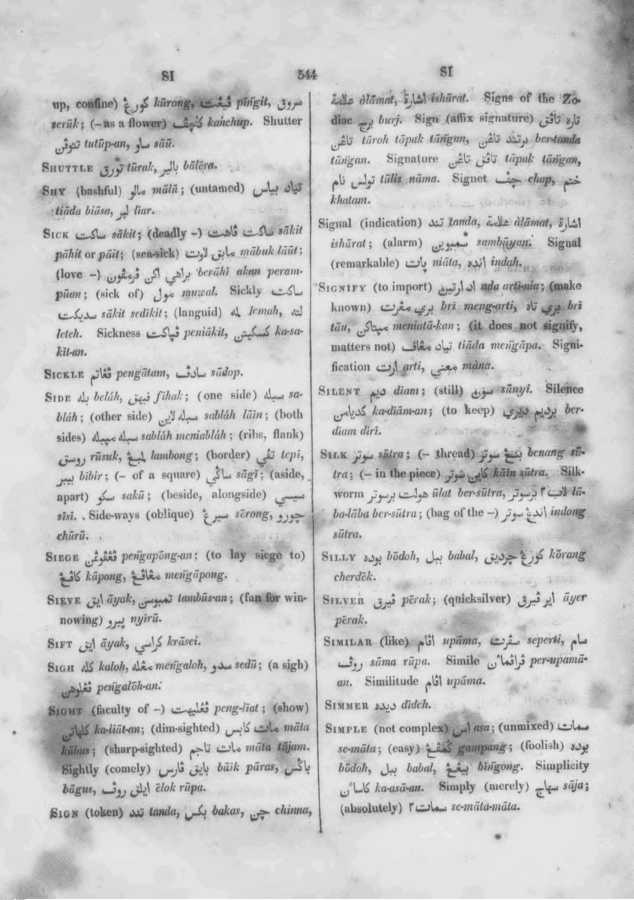 SI
544
SI
up, confine) كورڠ kūrong, ڤيڠت piṅgit, سروق
serūk; (– as a flower) كنچڤ kanchup. Shutter
توتوڤن tutūp-an, ساو sāū.
SHUTTLE تورق tūrak, بالير balēra.
SHY (bashful) مالو mālū; (untamed) تياد بياس
tiāda biāsa, لير liar.
SICK ساكت sākit; (deadly –) ساكت ڤاهت sākit
pāhit or pāit; (sea-sick) مابق لاوت mābuk lāūt;
(love –) براهي اكن ڤرمڤون berāhī akan peram-
pūan; (sick of) مول muwal. Sickly ساكت
سديكت sākit sedikit; (languid) لمه lemah, لته
leteh. Sickness ڤپاكت peniākit, كسكيتن ka-sa-
kit-an.
SICKLE ڤڠاتم peṅgātam, سادڤ sādop.
SIDE بله belāh, ڤيهق fihak; (one side) سبله sa-
blāh; (other side) سبله لاين sablāh lāin; (both
sides) سبله مپبله sablāh meniablāh; (ribs, flank)
روسق rūsuk, لمبڠ lambong; (border) تڤي tepi,
بيبر bibir; (– of a square) ساڬي sāgī; (aside,
apart) سكو sakū; (beside, alongside) سيسي
sīsī. Side-ways (oblique) سيرڠ sērong, چورو
chūrū.
SIEGE ڤڠڤوڠن peṅgapōng-an; (to lay siege to)
كاڤڠ kāpong, مڠاڤڠ meṅgāpong.
SIEVE ايق āyak, تمبوسن tambūs-an; (fan for win-
nowing) پيرو nyirū.
SIFT ايق āyak, كراسي krāsei.
SIGH كله kaloh, مڠله meṅgaloh, سدو sedū; (a sigh)
ڤڠلوهن peṅgalōh-an.
SIGHT (faculty of –) ڤڠليهت peng-līat; (show)
كلياتن ka-liāt-an; (dim-sighted) مات كابس māta
kābus; (sharp-sighted) مات تاجم māta tājam.
Sightly (comely) بايق ڤارس bāik pāras, باڬس
bāgus, ايلق روڤ ēlok rūpa.
SIGN (token) تند tanda, بكس bakas, چن chinna,
علامة âlāmat, اشارة ishārat. Signs of the Zo-
diac برج burj. Sign (affix signature) تاره تاڤق
تاڠن tāroh tāpak tāṅgan, برتند تاڠن ber-tanda
tāṅgan. Signature تاڤق تاڠن tāpak tāṅgan,
تولس نام tūlis nāma. Signet چڤ chap, ختم
khatam.
Signal (indication) تند tanda, علامة âlāmat, اشارة
ishārat; (alarm) سمبوين sambūyan. Signal
(remarkable) پات niāta, انده indah.
SIGNIFY (to import) اد ارتين ada arti-nia; (make
known) بري مڠرت brī meng-arti, بري تاه brī
tāu, مپتاكن meniatā-kan; (it does not signify,
matters not) تياد مڠاڤ tiāda meṅgāpa. Signi-
fication ارت arti, معني māna.
SILENT ديم diam; (still) سوپي sūnyi. Silence
كديامن ka-diām-an; (to keep) برديم ديري ber-
diam dīrī.
SILK سوتر sūtra; (– thread) بنڠ سوتر benang sū-
tra; (– in the piece) كاين سوتر kāin sūtra. Silk-
worm هولت برسوتر ūlat ber-sūtra, لاب٢ برسوتر lā-
ba-lāba ber-sūtra; (bag of the –) اندڠ سوتر indong
sūtra.
SILLY بوده bōdoh, ببل babal, كورڠ چرديق kōrang
cherdēk.
SILVER ڤيرق pērak; (quicksilver) اير ڤيرق āyer
pērak.
SIMILAR (like) اڤام upāma, سڤرت seperti, سام
روڤ sāma rūpa. Simile ڤراڤمان per-upamā-
an. Similitude اڤام upāma.
SIMMER ديده dīdeh.
SIMPLE (not complex) اس asa; (unmixed) سمات
se-māta; (easy) ڬمڤڠ gampang; (foolish) بوده
bōdoh, ببل babal, بيڠڠ biṅgong. Simplicity
كاسان ka-asā-an. Simply (merely) سهاج sāja;
(absolutely) سمات٢ se-māta-māta.